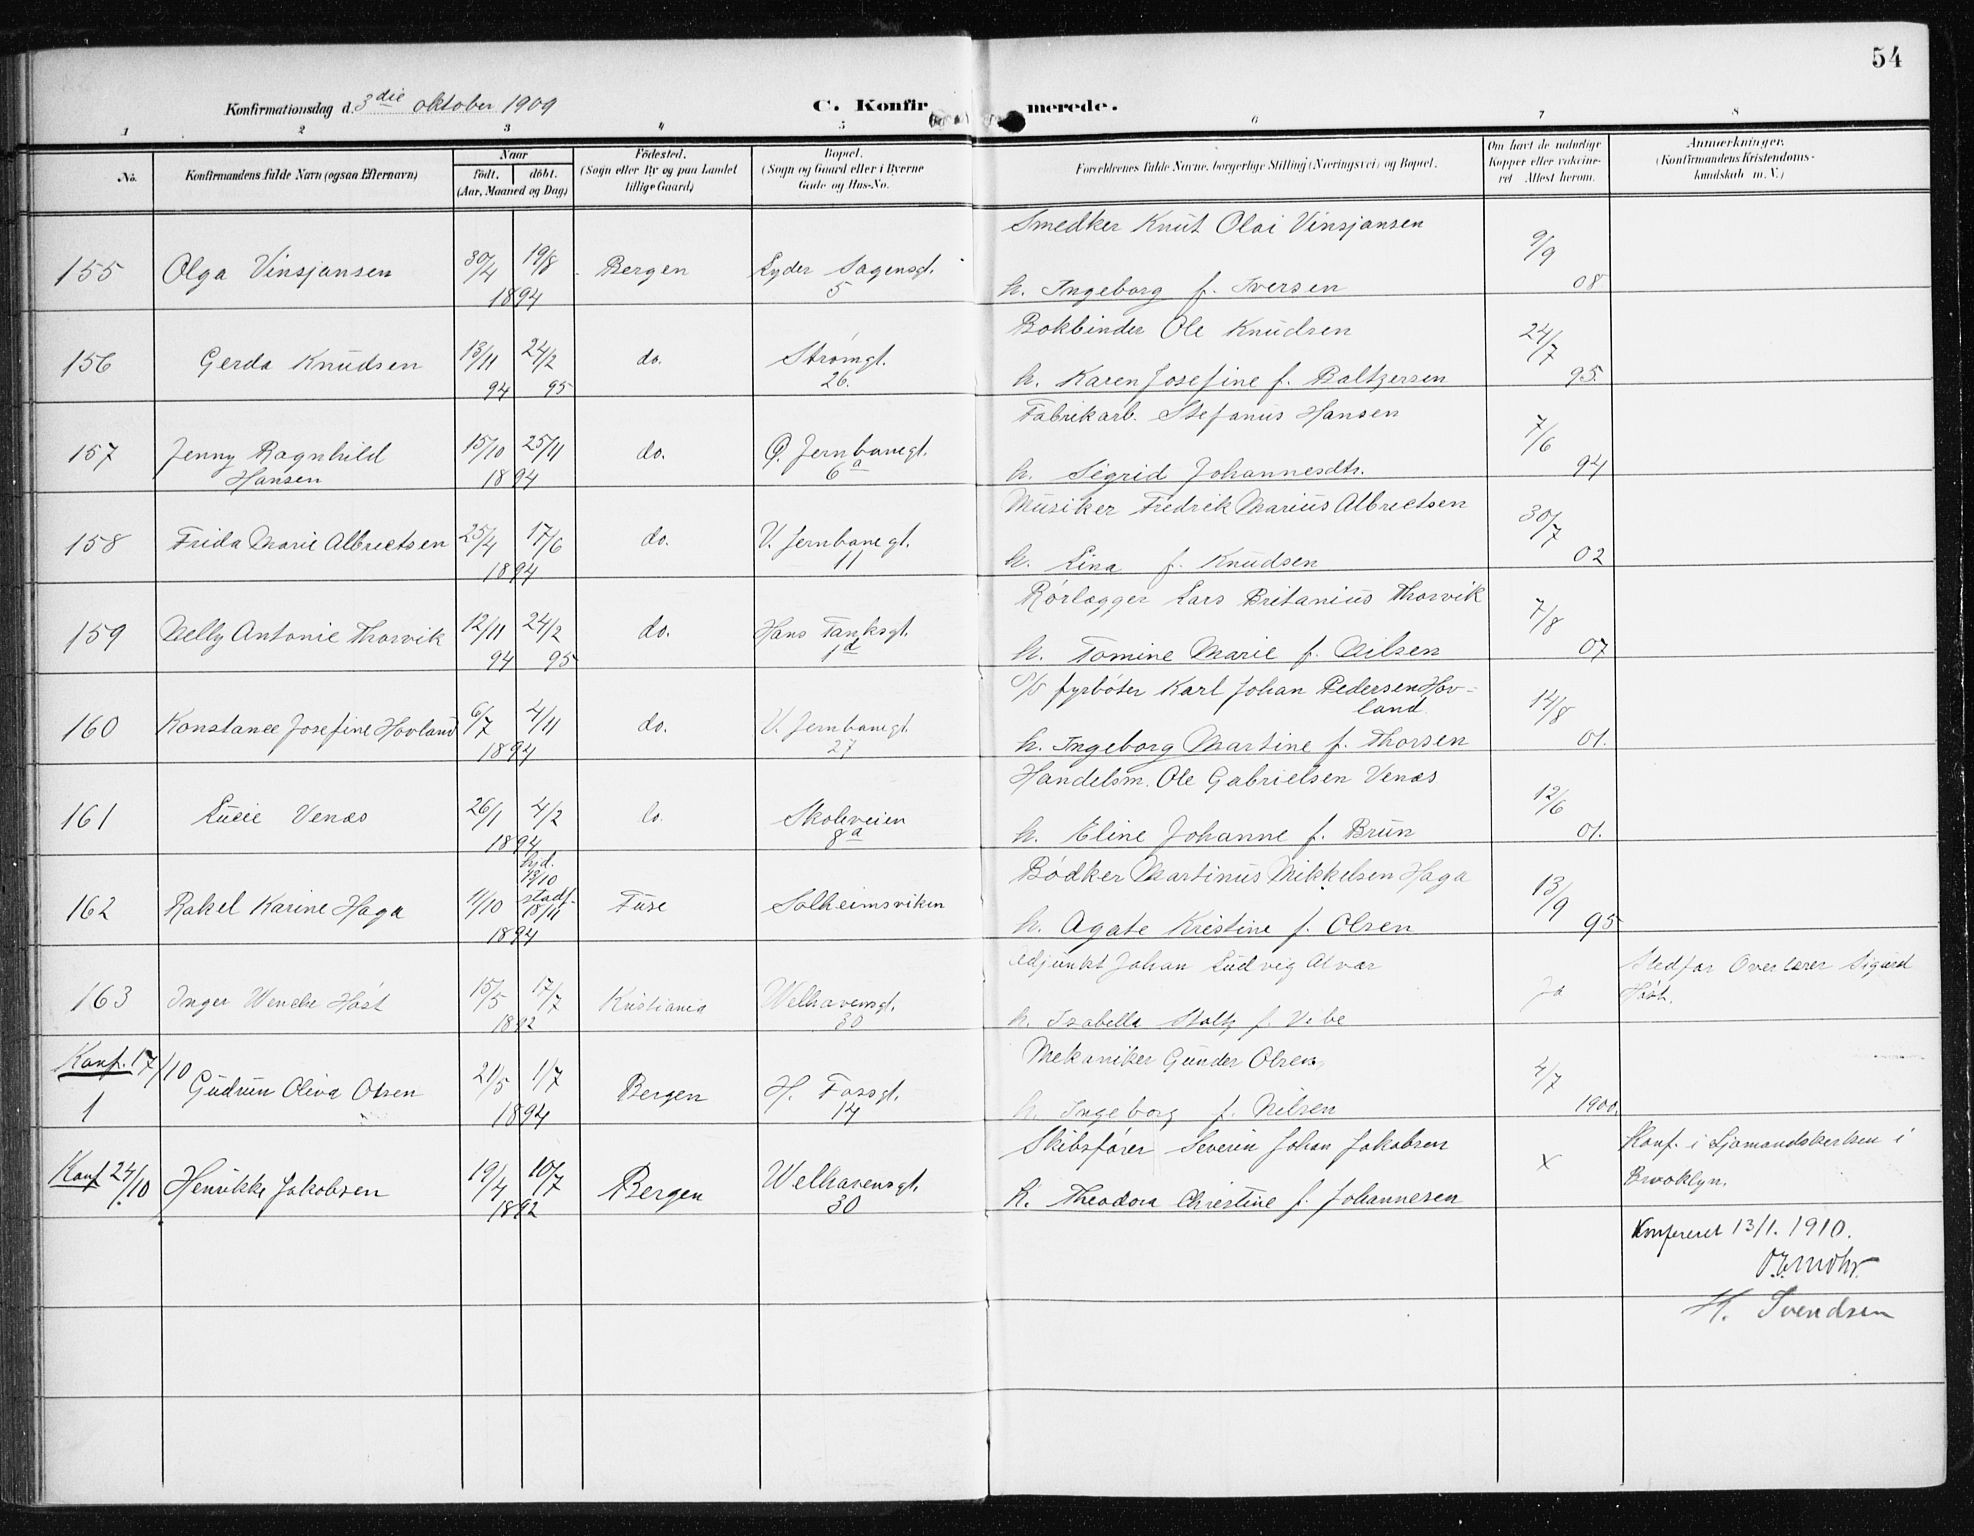 54
Konfirmationsdag d. 3die oktober 1909
C. Konfirmerede.
1 2 3 4 5 6 7 8
No.
Konfirmandens fulde Navn (ogsaa Efternavn)
Naar
født. døbt.
(Aar, Maaned og Dag)
Fødested.
(Sogn eller By og paa Landet
tillige Gaard)
Bopæl.
(Sogn og Gaard eller i Byerne
Gade og Hus-No.
Forældrenes fulde Navne, borgerlige Stilling (Næringsvei) og Bopæl.
Om havt de naturlige
Kopper eller vakcine-
ret Attest herom.
Anmærkninger.
(Konfirmandens Kristendoms-
kundskab m. V.)
Smedker Knut Olai Vinsjansen
155 Olga Vinsjansen 30/4 19/8 Bergen Lyder Sagensgt. 9/9
1894 5 h. Ingeborg f. Iversen 08
Bokbinder Ole Knudsen
156 Gerda Knudsen 13/11 24/2 do. Strømgt. 24/7
94 95 26. h. Karen Josefine f. Baltzersen 95.
Fabrikarb. Stefanus Hansen
157 Jenny Ragnhild 15/10 25/11 do. Ø. Jernbanegt. 7/6
Hansen 1894 6a h. Sigrid Johannesdtr. 94
Musiker Fredrik Marius Albrectsen
158 Frida Marie Albrectsen 25/4 17/6 do. V. Jernbanegt. 30/7
1894 11 h. Lina f. Knudsen 02
Rørlægger Lars Britanius Thorvik
159 Nelly Antonie Thorvik 12/11 24/2 do. Hans Tanksgt. 7/8
94 95 1d h. Tomine Marie f. Nilsen 07
fyrbøter Karl Johan Pedersen Hov-
land.
160 Konstance Josefine Hovland 6/7 4/11 do. V. Jernbanegt. 14/8
1894 27 h. Ingeborg Martine f. Thorsen 01.
Handelsm. Ole Gabrielsen Venæs
161 Lucie Venæs 26/1 4/2 do. Skoleveien 12/6
1894 8a h. Eline Johanne f. Brun 01.
hjd.
13/10
Bødker Martinus Mikkelsen Haga
162 Rakel Karine Haga 11/10 stadf. 18/11 Fuse Solheimsviken 13/9
1894 h. Agate Kristine f. Olsen 95
Adjunkt Johan Ludvig Alvær Stedfar Overlærer Sigurd
163 Inger Wenche Høst 15/5 17/7 Kristiania Welhavensgt. Ja Høst.
1892 30 h. Isabella Stoltz f. Vibe
Konf. 17/10
Mekaniker Gunder Olsen
1 Gudrun Oliva Olsen 21/5 1/7 Bergen H. Fossgt. 4/7
1894 14 h. Ingeborg f. Nilsen 1900.
Skibsfører Severin Johan Jakobsen Konf. i Sjømandskirken i
Konf 24/10 Henrikke Jakobsen 19/4 10/7 Bergen Welhavensgt. x Brooklyn.
1892 30 h. Theodora Christine f. Johannesen
Konfereret 13/1. 1910.
Mohr.
H. Svendsen